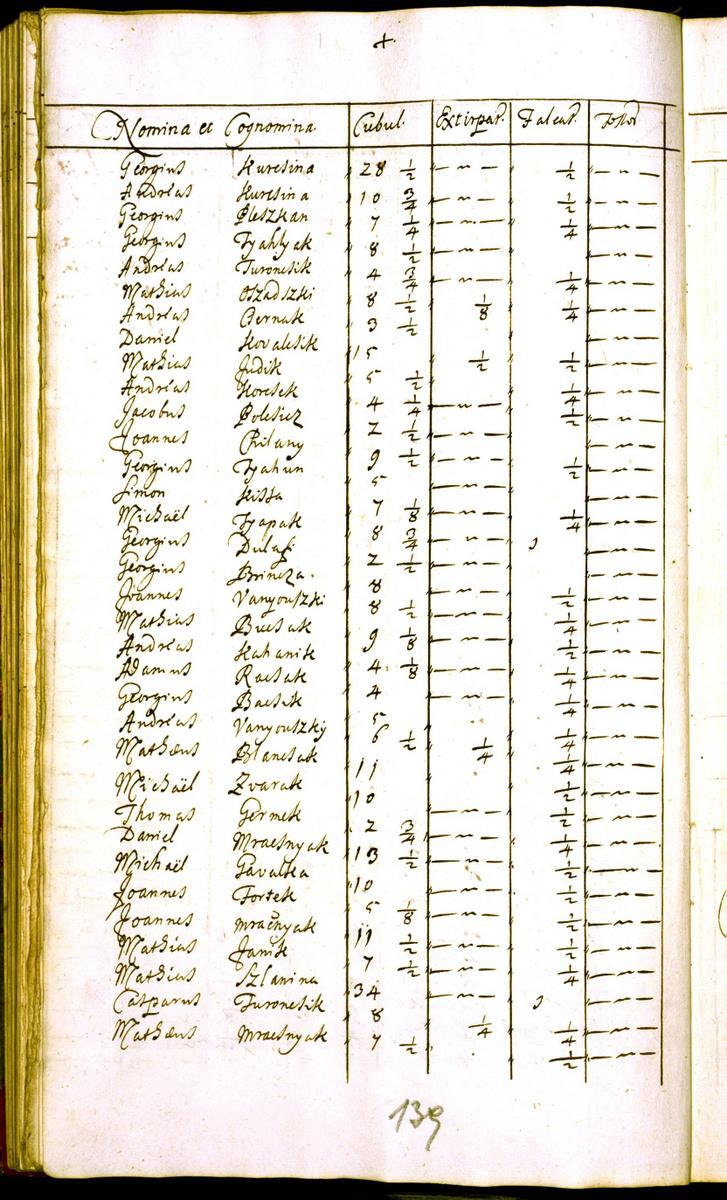 +
Nomina et Cognomina Cubul. Extirpat. Falcat. Fossor
Georgius Huresina 28 1/2 — " — 1/2 — " —
Andreas Huresina 10 3/4 — " — 1/2 — " —
Georgius Pleszkan 7 1/4 — " — 1/4 — " —
Georgius Tyahlyak 8 1/2 — " — — " —
Andreas Turoncsik 4 3/4 — " — 1/4 — " —
Mathias Oszadszki 8 1/2 1/8 1/4 — " —
Andreas Bernak 3 1/2 — " —
Daniel Kovalcsik 15 1/2 1/2 — " —
Mathias Judik 5 1/2 1/4 — " —
Andreas Horcsek 4 1/4 — " — 1/2 — " —
Jacobus Bolesicz 2 1/2 — " — — " —
Joannes Chilany 9 1/2 — " — 1/2 — " —
Georgius Tyahun 5 — " — — " —
Simon Kissa 7 1/8 — " — 1/4 — " —
Michaël Tyapak 8 3/4 — " — J — " —
Georgius Dulaj 2 1/2 — " — — " —
Georgius Brincza 8 — " — 1/2 — " —
Joannes Vanyouszki 8 1/2 — " — 1/4 — " —
Mathias Bucsak 9 1/8 — " — 1/2 — " —
Andreas Kahanik 4 1/8 — " — 1/4 — " —
Adamus Racsak 4 — " — 1/4 — " —
Georgius Bacsik 5 1/4 — " —
Andreas Vanyouszky 6 1/2 1/4 1/4 — " —
Mathæus Blancsak 11 1/2 — " —
Michaël Zvarak 10 — " — 1/2 — " —
Thomas Germek 2 3/4 — " — 1/4 — " —
Daniel Mracsnyak 13 1/2 — " — 1/2 — " —
Michaël Gavalka 10 — " — 1/2 — " —
Joannes Fortek 5 1/8 — " — 1/2 — " —
Joannes mračnyak 11 1/2 — " — 1/2 — " —
Mathias Janik 7 1/2 — " — 1/4 — " —
Mathias Szlanina 34 — " — J — " —
Casparus Turoncsik 8 1/4 1/4 — " —
Mathæus Mracsnyak 7 1/2 1/2 — " —
139